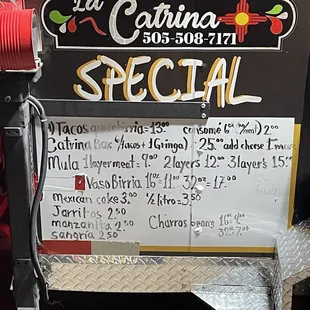 La Catrina
505-508-7171
SPECIAL
Tacos = 13.00 consomé 6 2.00
Catrina Box 6/tacos + 1 Gringo) 25.00 add cheese
Mula 1 layer meet = 9.00 2 layers 12.00 3 layer's 15.00
Vaso Birria 16oz = 11.00 32oz = 17.00
Mexican coke 3.00 1/2 litro = 3.50
Jarritos 2.50
manzanita 2.50 Charros beans 16 =
sangria 2.50 32 = 7.00